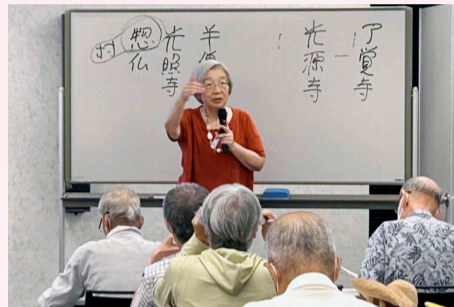 了覚寺
光源寺
光照寺
惣仏
村